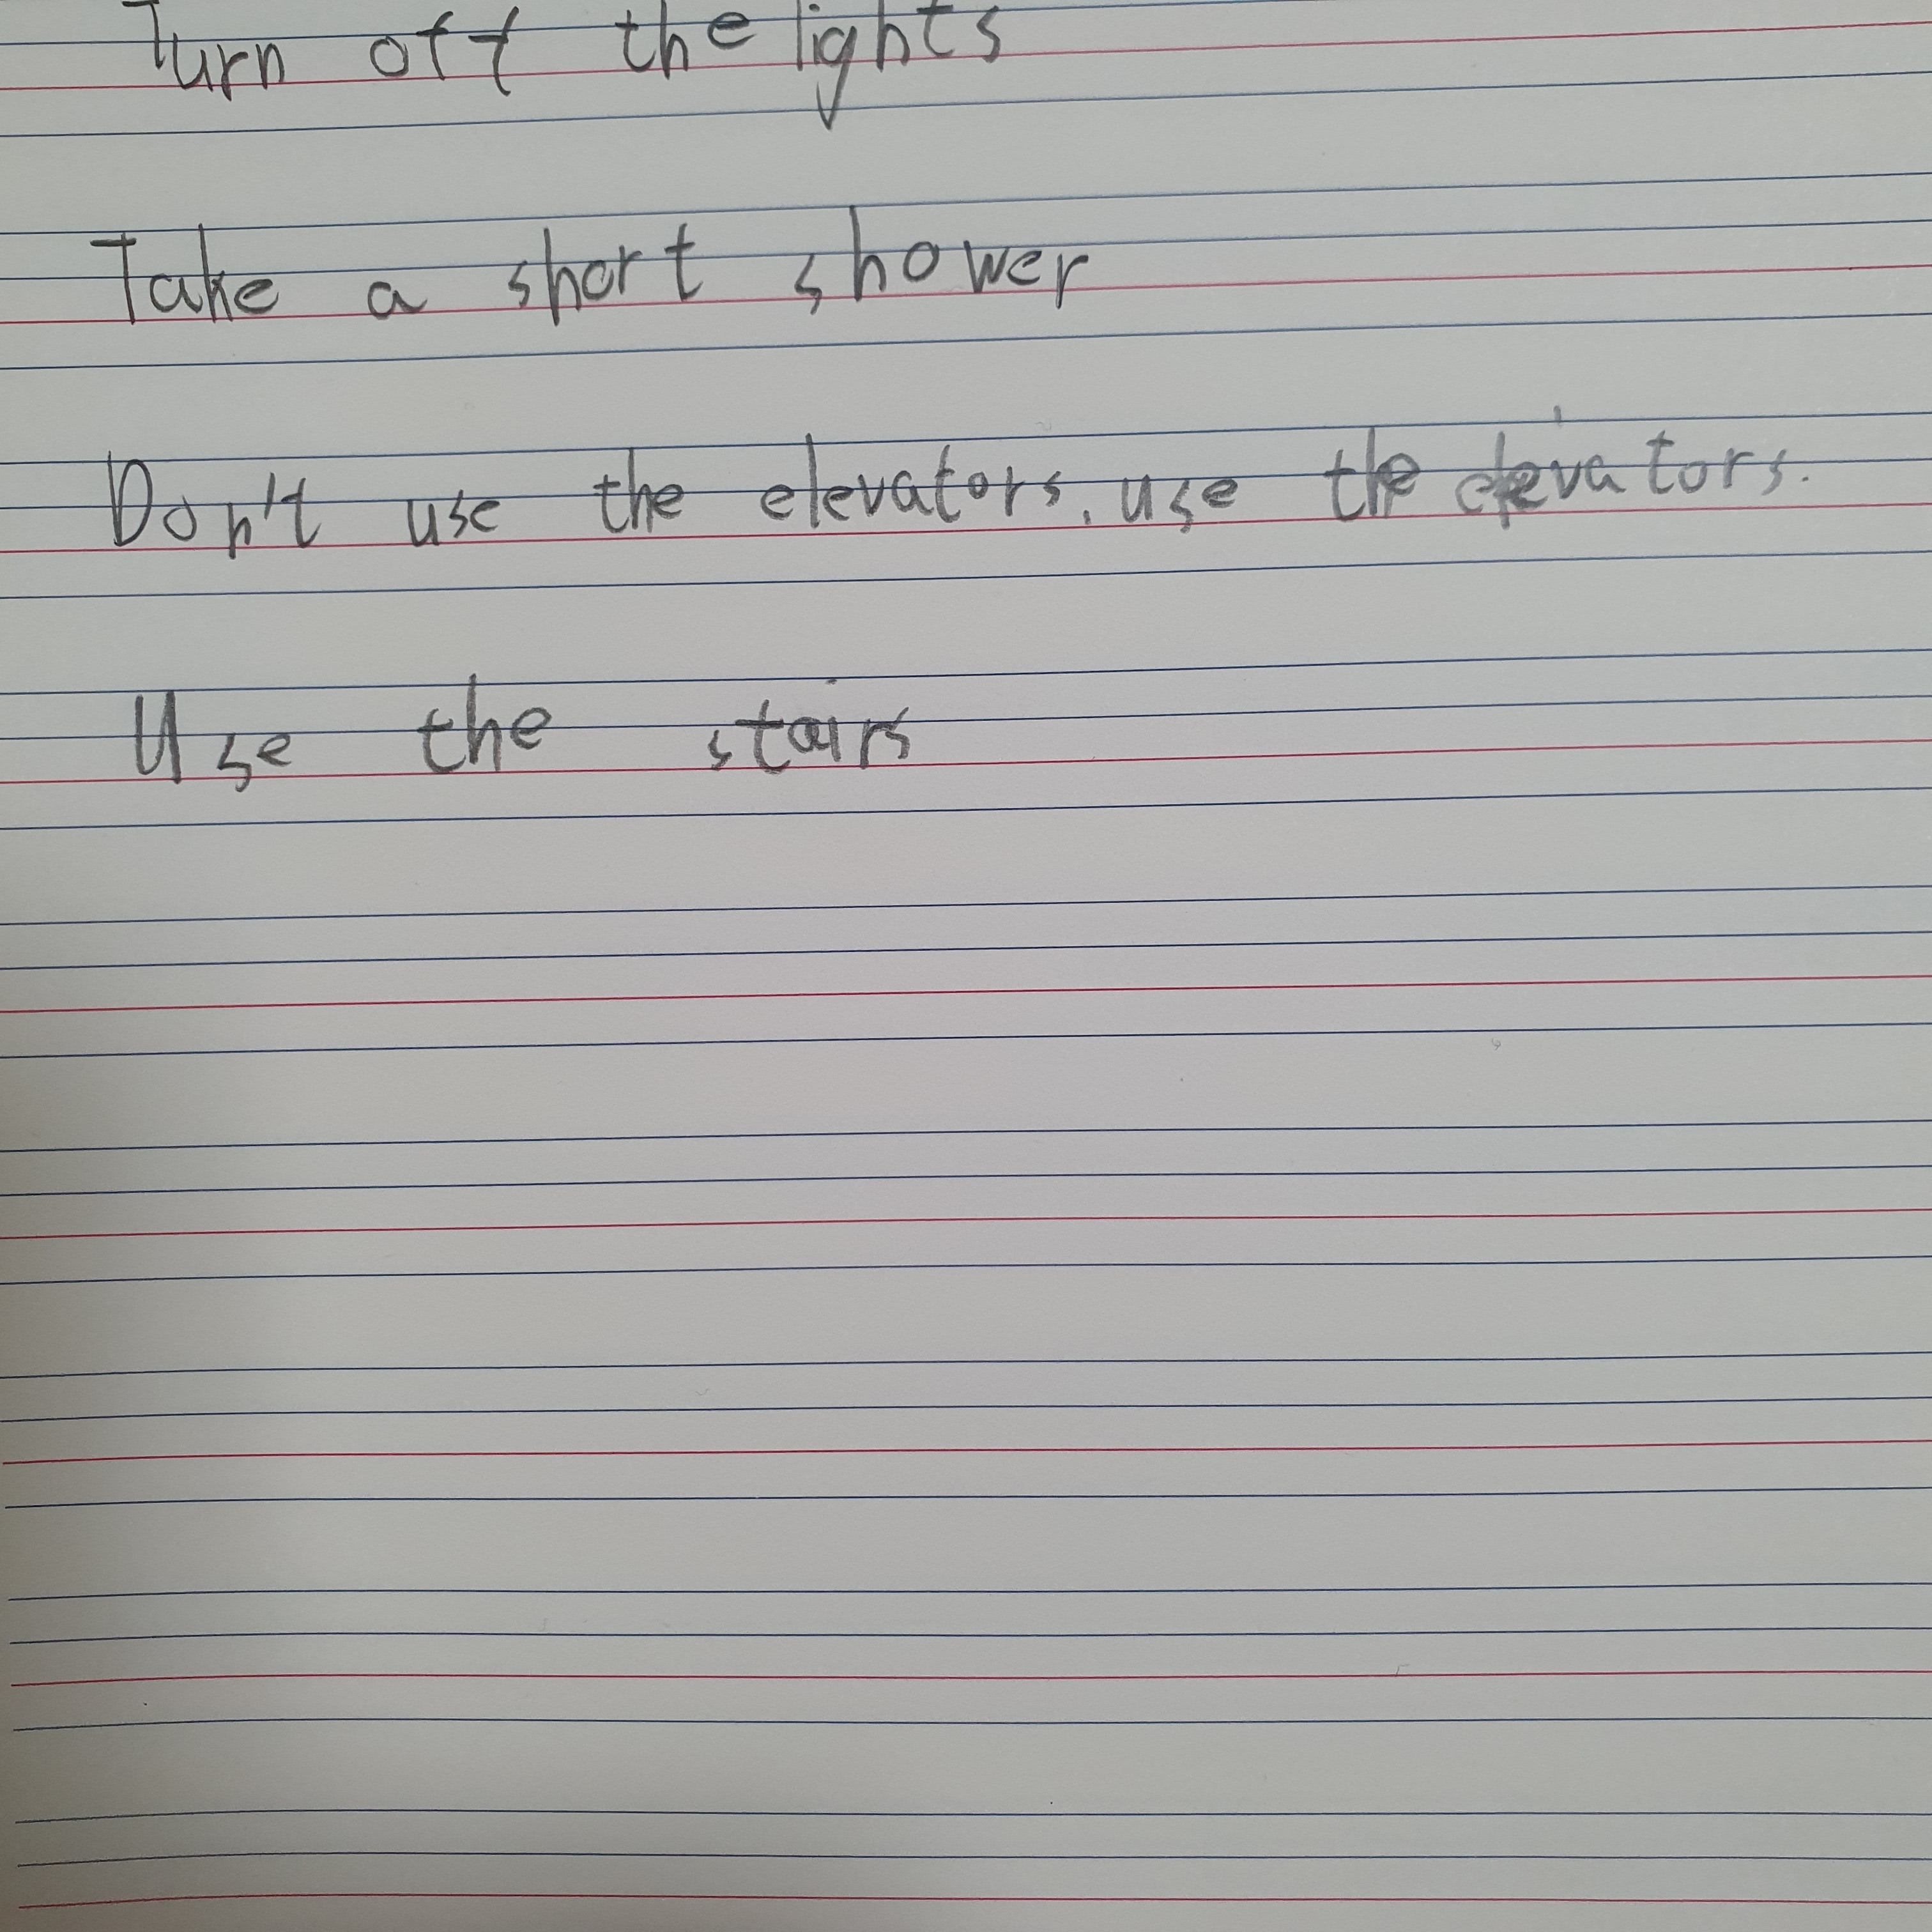 Turn off the lights
Take a short shower
Don't use the elevators, use the elevators.
Use the stairs